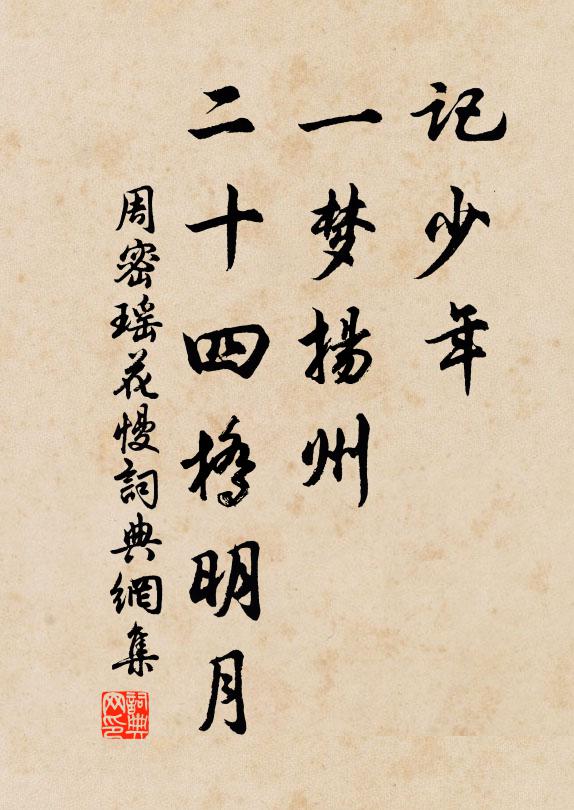 記少年
一梦揚州
二十四橋明月
周密瑶花慢詞典網集
詞典网印